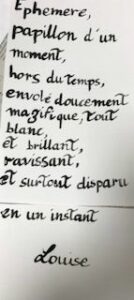 Ephemere,
papillon d'un
moment,
hors du temps,
envolé doucement
magifique, tout
blanc,
et brillant,
ravissant,
et surtout disparu
en un instant
Louise